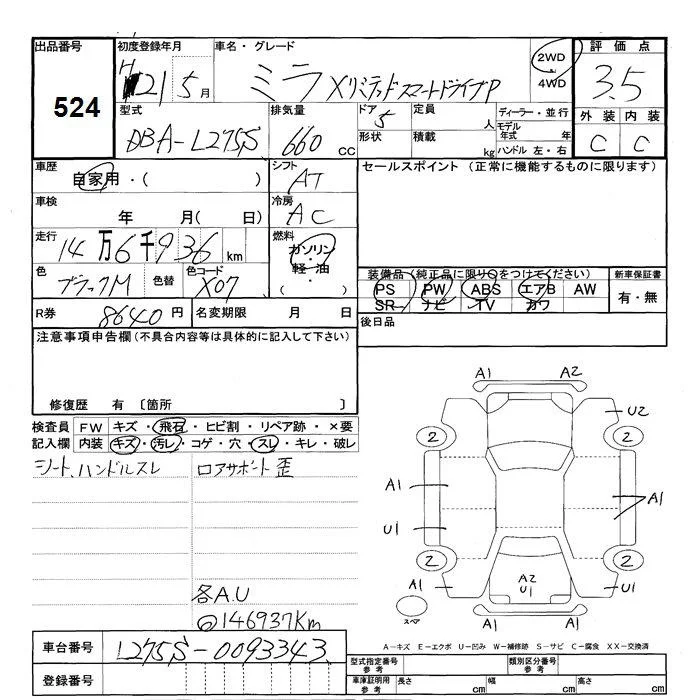 出品番号 初度登録年月 車名・グレード 評価点
524 H 21 5月 ミラ XリミテッドスマートドライブP 2WD・4WD 3.5
型式 排気量 ドア 5 定員 人 ディーラー・並行 外装 内装
DBA-L275S 660 cc 形状 積載 kg モデル年式 年 ハンドル 左・右 C C
車歴 自家用・( ) シフト AT セールスポイント (正常に機能するものに限ります)
車検 年 月( 日) 冷房 AC
走行 14万6千936km 燃料 ガソリン・軽・油・( )
色 ブラックM 色替 色コード X07 装備品(純正品に限り○をつけてください) 新車保証書
PS PW ABS エアB AW 有・無
SR ナビ TV カワ
R券 8640円 名変期限 月 日 後日品
注意事項申告欄(不具合内容等は具体的に記入して下さい)
修復歴 有 〔箇所 〕
検査員 FW キズ・飛石・ヒビ割・リペア跡・×要
記入欄 内装 キズ・汚レ・コゲ・穴・スレ・キレ・破レ
シート、ハンドルスレ ロアサポート歪
各A.U
@146937Km
A1 A2
U2
2 2
A1 A1
U1
2 2
A1 A2 U1 U1
スペア A1 A1
A-キズ E-エクボ U-凹み W-補修跡 S-サビ C-腐食 XX-交換済
車台番号 L275S-0093343
登録番号
型式指定番号 参考 類別区分番号 参考
車庫証明用 参考 長さ cm 幅 cm 高さ cm